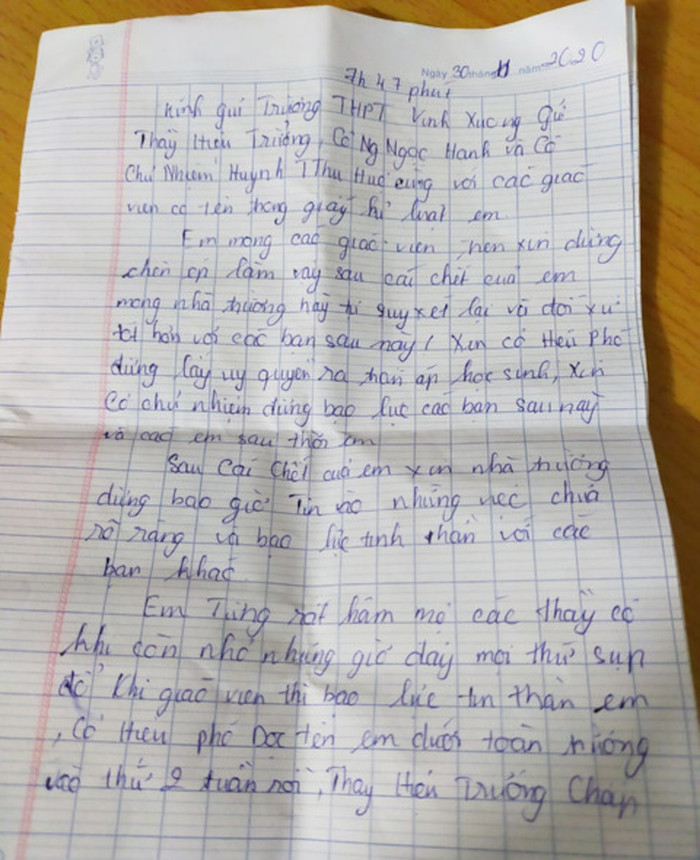 Ngày 30 tháng 11 năm 2020
7h 47 phút
Kính gửi Trường THPT Vĩnh Xương gửi
Thầy Hiệu Trưởng, Cô Ng Ngọc Hạnh và Cô
Chủ Nhiệm Huỳnh T Thu Huệ cùng với các giáo
viên có tên trong giấy kỉ luật em
Em mong các giáo viên, nên xin đừng
chèn ép làm vậy sau cái chết của em
mong nhà trường hãy quyết lại và đối xử
tốt hơn với các bạn sau này! Xin cô Hiệu Phó
đừng lấy uy quyền ra đàn áp học sinh, xin
Cô chủ nhiệm đừng bạo lực các bạn sau này
và các em sau thời em
Sau Cái Chết của em xin nhà trường
đừng bao giờ Tin vào những việc chưa
rõ ràng và bạo lực tinh thần với các
bạn khác.
Em Từng rất hâm mộ các thầy cô
khi còn nhỏ nhưng giờ đây mọi thứ sụp
đổ Khi giáo viên thì bạo lực tin thần em
, Cô Hiệu phó Đọc tên em dưới toàn trường
vào thứ 2 tuần rồi, Thầy Hiệu Trưởng Chấp